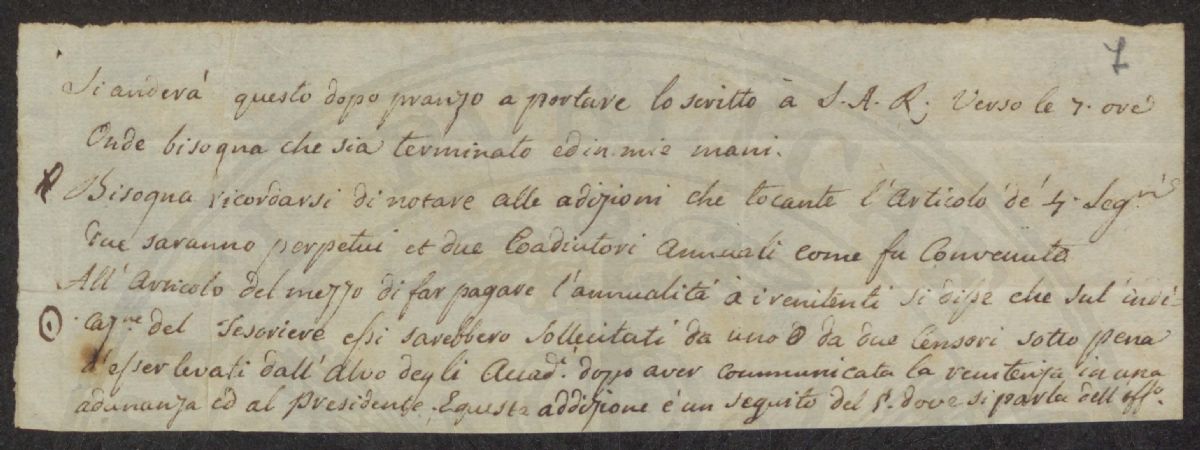 7
Si anderá questo dopo pranzo a portare lo scritto à S. A. R. Verso le 7. ore
Onde bisogna che sia terminato ed in mie mani.
Bisogna ricordarsi di notare alle adizioni che tocante l'Articolo de' 4. Seg.ri
Due saranno perpetui et due Coadiutori Annuali come fu Convenuto
All' Articolo del mezzo di far pagare l'annualitá à i renitenti si disse che sul' indi-
caz.ne del Tesoriere essi sarebbero sollecitati da uno o da due Censori sotto pena
d'esser levati dall' Alvo degli Accad.i dopo aver communicata la renitenza in una
adunanza ed al Presidente. E questa addizione é un seguito del §. dove si parla dell' uff.o